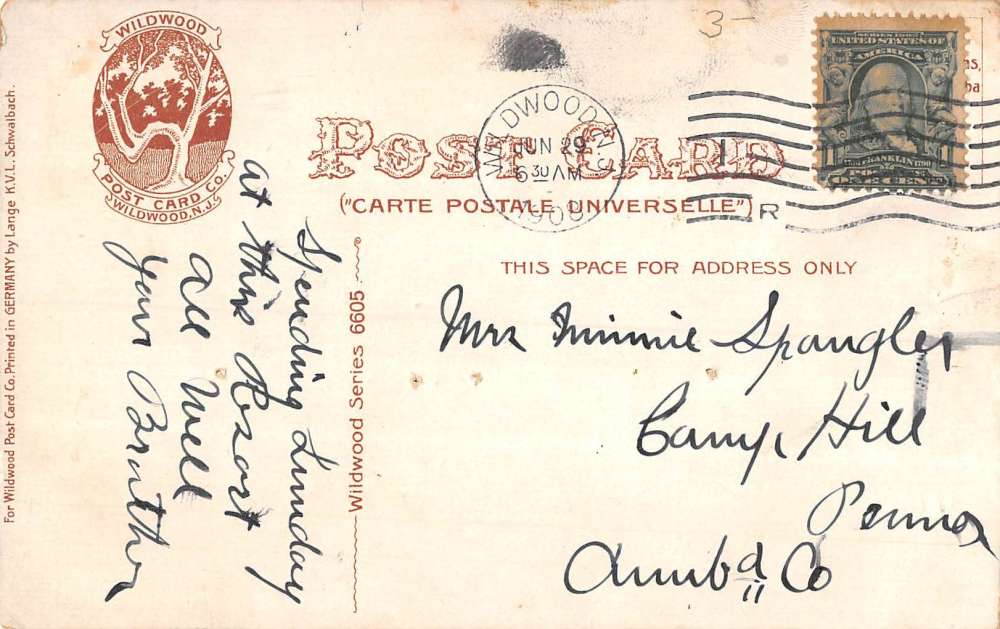 WILDWOOD
POST CARD CO.
WILDWOOD, N.J.
For Wildwood Post Card Co. Printed in GERMANY by Lange K.V.L. Schwalbach.
3-
POST CARD
("CARTE POSTALE UNIVERSELLE")
WILDWOOD, N.J.
JUN 29
6 30 AM
1908
1
R
SERIES 1902
UNITED STATES OF
AMERICA
FRANKLIN 1790
1 POSTAGE 1
ONE CENT
THIS SPACE FOR ADDRESS ONLY
Wildwood Series 6605
Spending Sunday
at this Resort
all well
your Brother
Mrs Minnie Spangler
Camp Hill
Penna
Cumbd Co